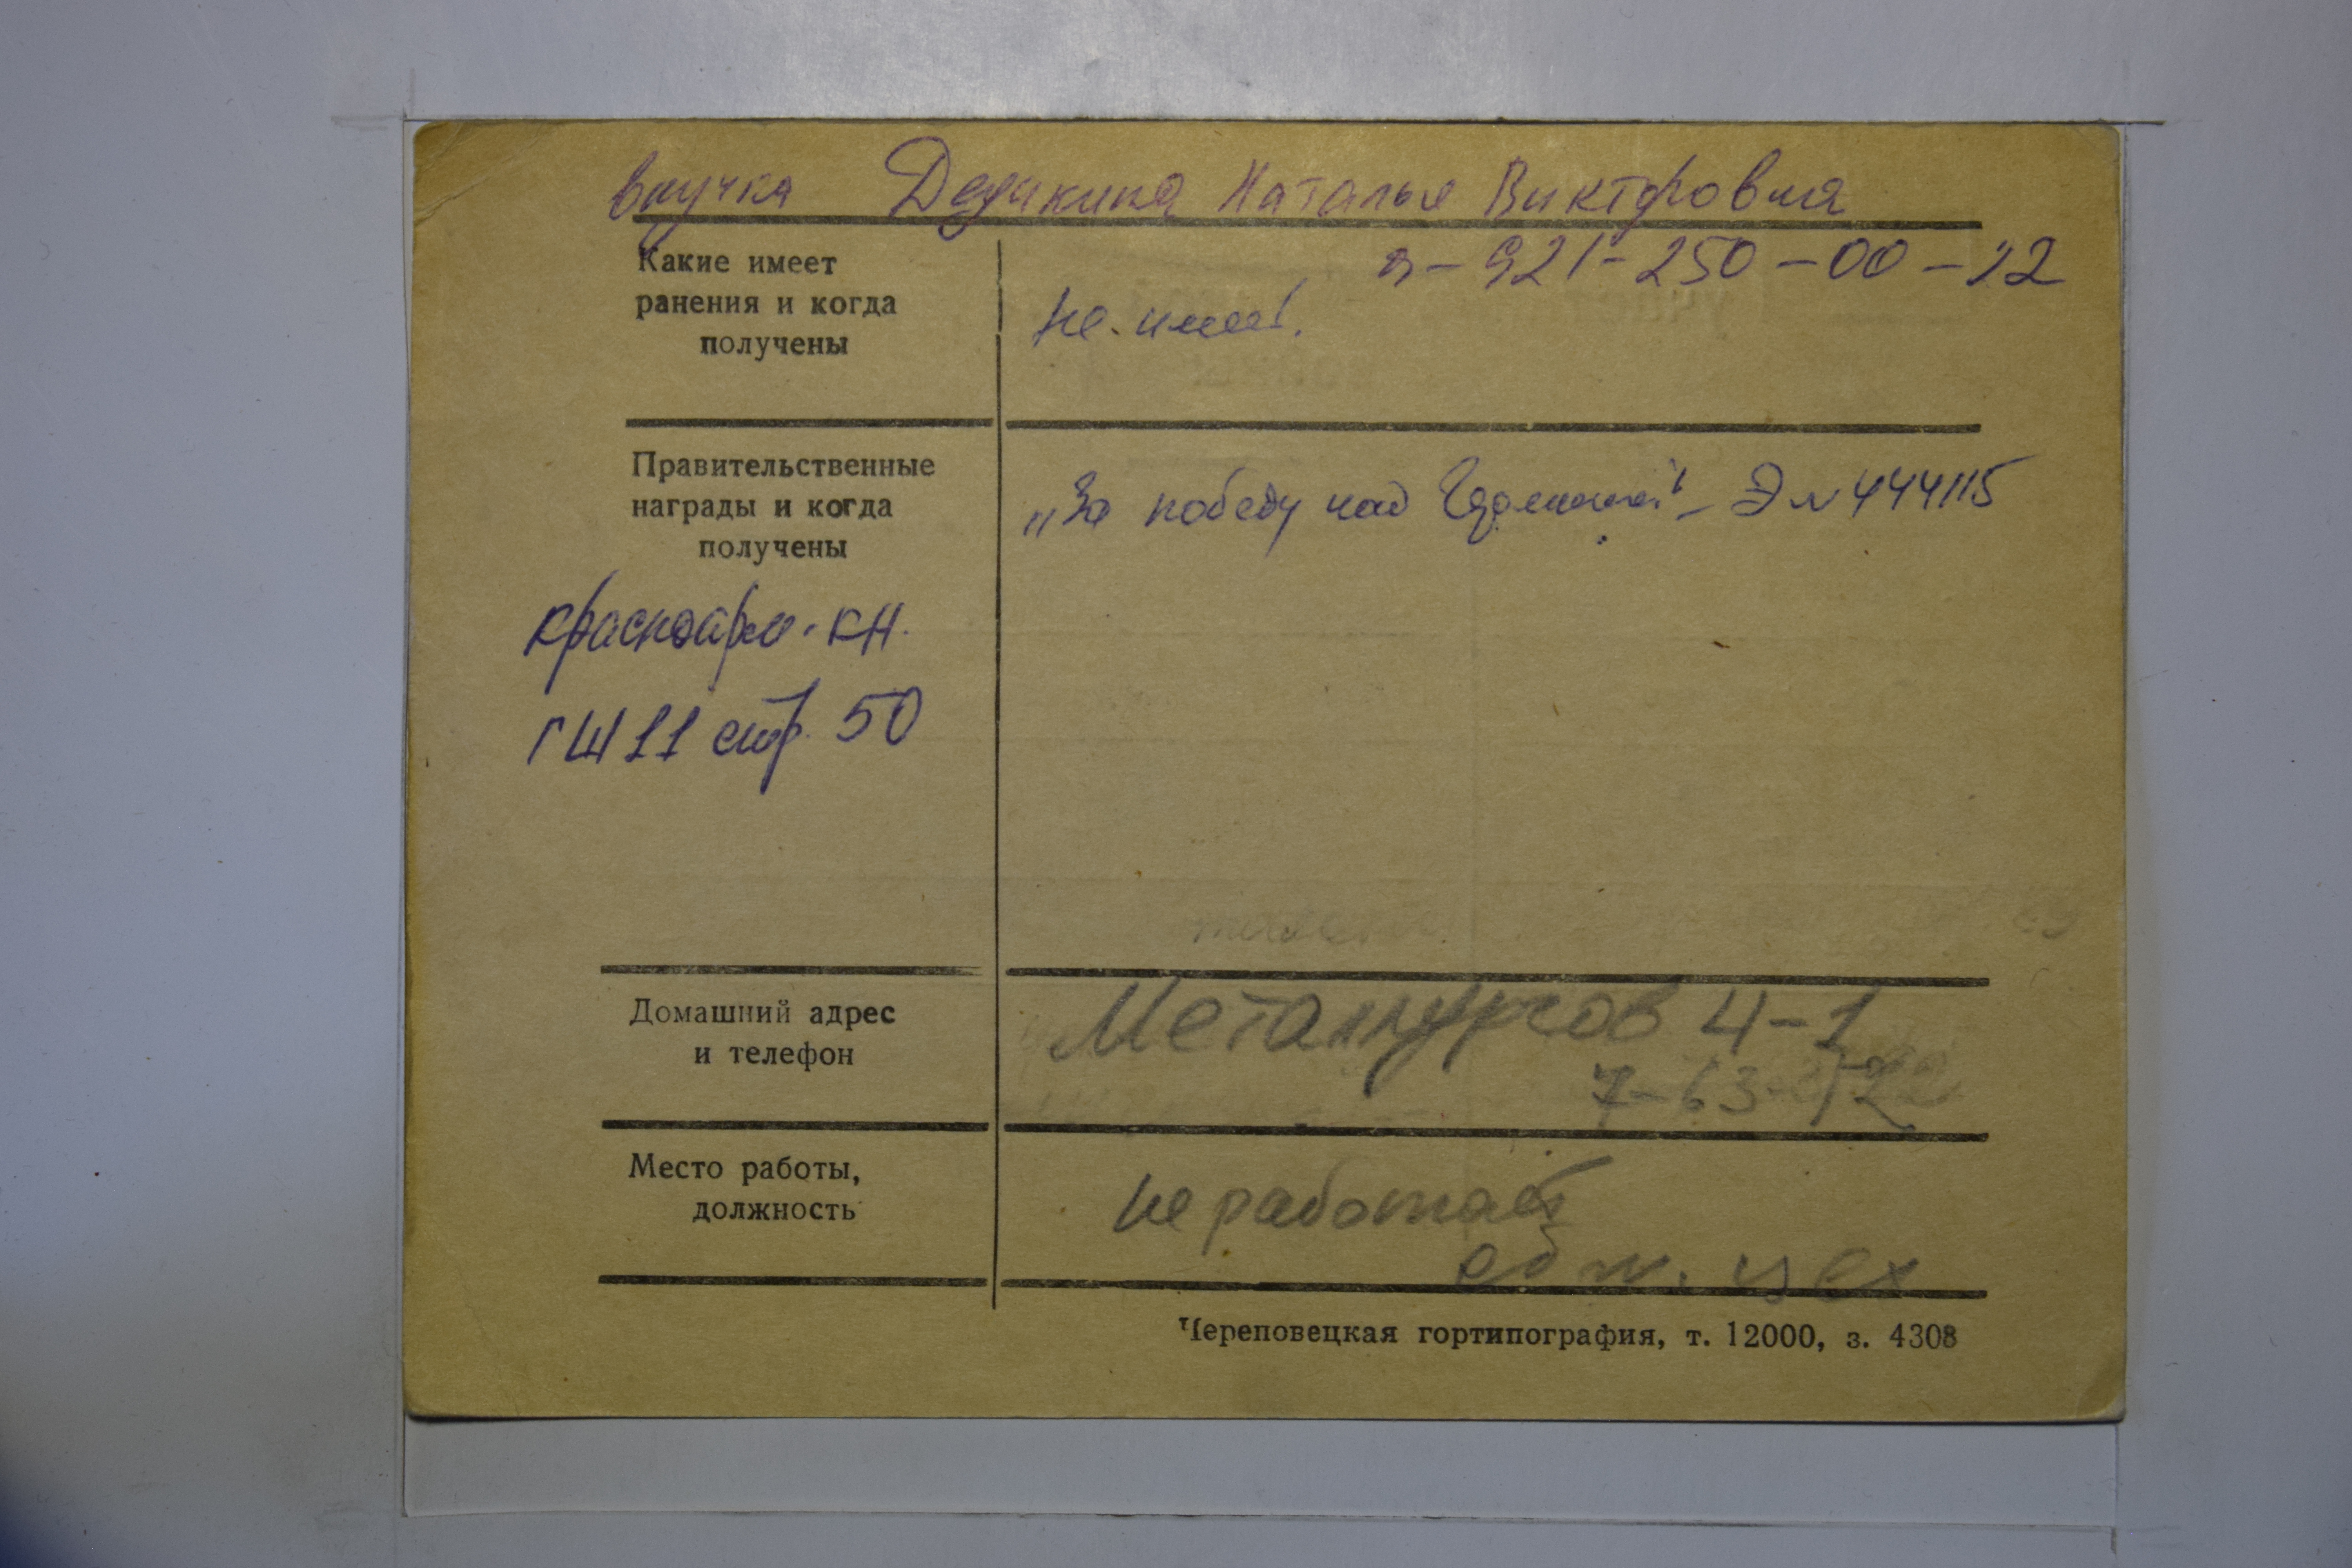 внучка Дедикина Наталья Викторовна
8-921-250-00-22
Какие имеет
ранения и когда
получены
не имеет.
Правительственные
награды и когда
получены
„За победу над Германией" - Э № 444115
красноарм. кн.
ГШ 11 стр. 50
Домашний адрес
и телефон
Металлургов 4-1
7-63-
Место работы,
должность
не работает
обж. цех
Череповецкая гортипография, т. 12000, з. 4308